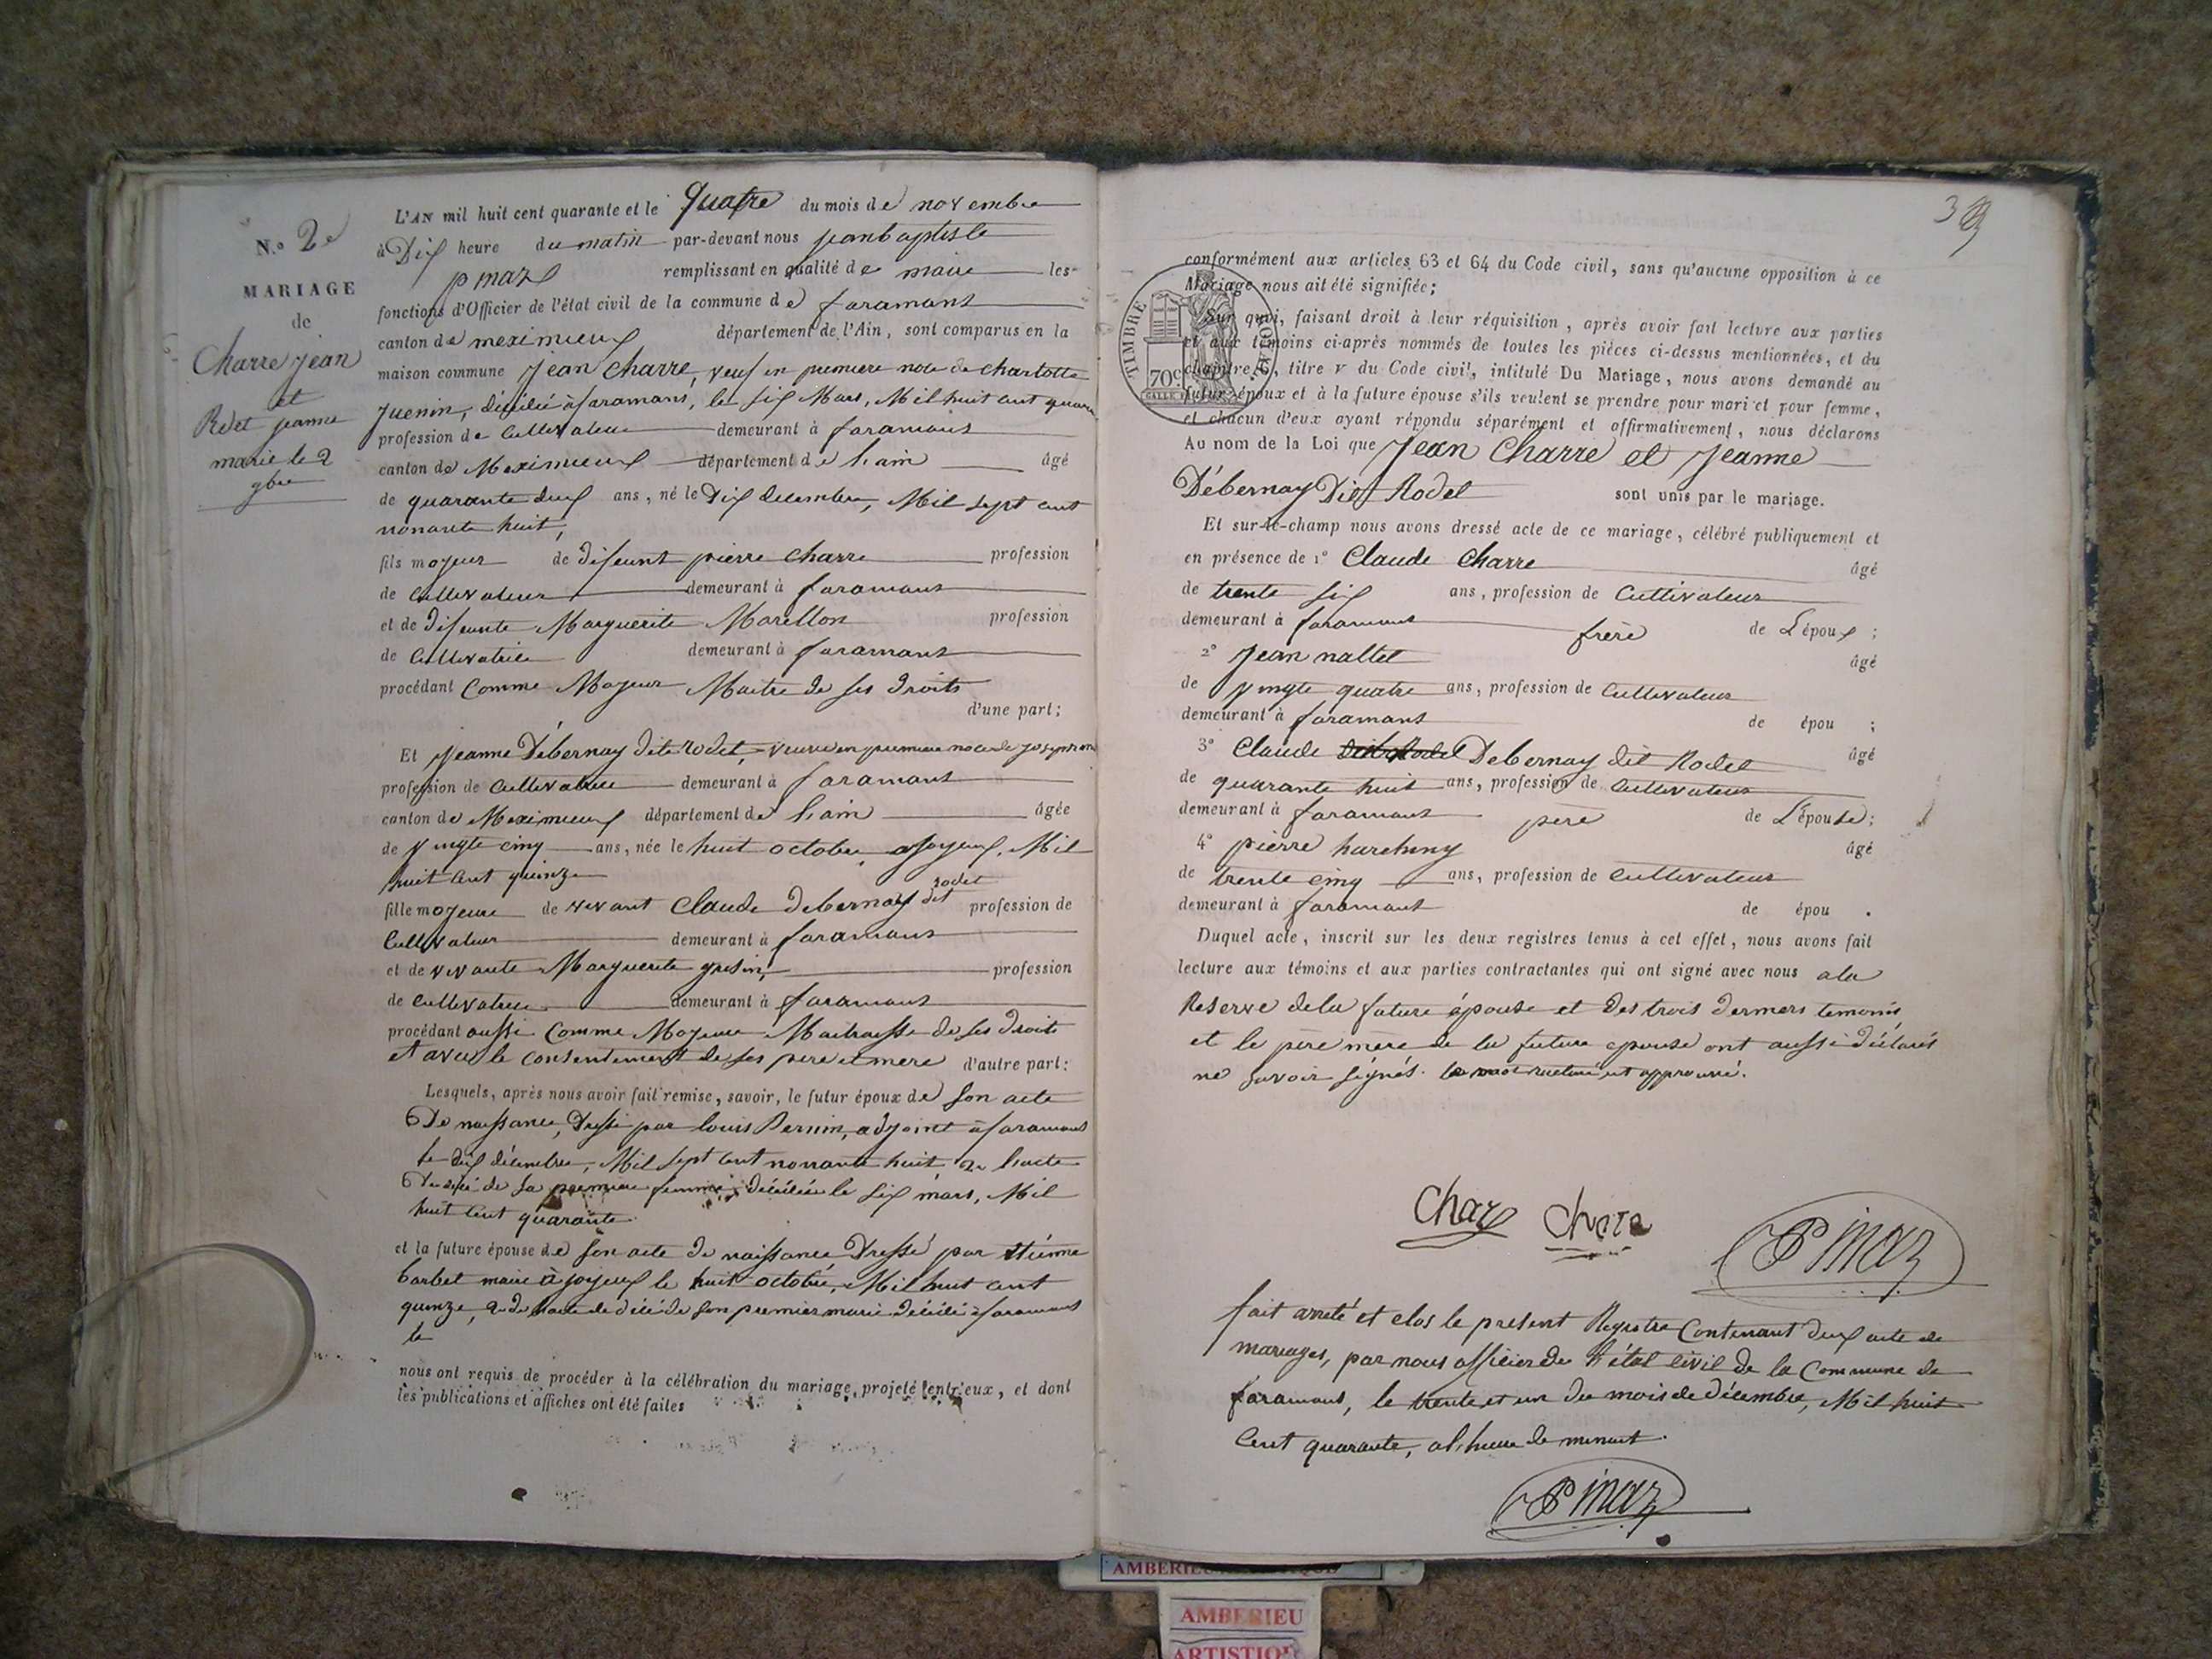 N.o 2e
MARIAGE
de
Charre jean
et
Rodet jeanne
marie le 2
9bre
L'AN mil huit cent quarante et le quatre du mois de novembre
à Dix heure du matin par-devant nous jean baptiste
pinaz remplissant en qualité de maire les
fonctions d'Officier de l'état civil de la commune de faramans
canton de meximieux département de l'Ain, sont comparus en la
maison commune Jean Charre, veuf en premiere noce de charlotte
Juenin, décédée à faramans, le six Mars, Mil huit cent quara
profession de Cultivateur demeurant à faramans
canton de Meximieux département de l'ain âgé
de quarante deux ans, né le Dix decembre, Mil sept cent
nonante huit,
fils majeur de defeunt pierre Charre profession
de Cultivateur demeurant à faramans
et de defeunte Marguerite Marellon profession
de Cultivatrice demeurant à faramans
procédant Comme Majeur Maitre de ses droits
d'une part;
Et Jeanne Débernay dite rodet, veuve en premiere noce de
profession de Cultivatrice demeurant à faramans
canton de Meximieux département de l'ain âgée
de vingte cinq ans, née le huit octobre a joyeux, Mil
huit cent quinze
fille majeure de vivant Claude Debernay dit rodet profession de
Cultivateur demeurant à faramans
et de vivante Marguerite profession
de Cultivatrice demeurant à faramans
procédant aussi Comme Majeure Maitraisse de ses droits
et avec le consentement de ses pere et mere d'autre part:
Lesquels, après nous avoir fait remise, savoir, le futur époux de son acte
De naissance, Dressé par louis Pernin, adjoint à faramans
le dix décembre, Mil sept cent nonante huit, de l'acte
De décé de sa premiere femme, décédée le six mars, Mil
huit cent quarante
et la future épouse de son acte de naissance Dressé par Etienne
barbet maire à joyeux le huit octobre, Mil huit cent
quinze, de l'acte de décé de son premier marie décédé à faramans
le
nous ont requis de procéder à la célébration du mariage projeté entr'eux, et dont
les publications et affiches ont été faites
conformément aux articles 63 et 64 du Code civil, sans qu'aucune opposition à ce
Mariage nous ait été signifiée;
Sur quoi, faisant droit à leur réquisition, après avoir fait lecture aux parties
et aux témoins ci-après nommés de toutes les pièces ci-dessus mentionnées, et du
chapitre 6, titre v du Code civil, intitulé Du Mariage, nous avons demandé au
futur époux et à la future épouse s'ils veulent se prendre pour mari et pour femme,
et chacun d'eux ayant répondu séparément et affirmativement, nous déclarons
Au nom de la Loi que Jean Charre et Jeanne
Débernay Dite Rodet sont unis par le mariage.
Et sur-le-champ nous avons dressé acte de ce mariage, célébré publiquement et
en présence de 1° Claude Charre âgé
de trente six ans, profession de Cultivateur
demeurant à faramans frère de L'époux;
2° Jean nallet âgé
de vingte quatre ans, profession de Cultivateur
demeurant à faramans de épou ;
3° Claude Debernay dit Rodet âgé
de quarante huit ans, profession de Cultivateur
demeurant à faramans pere de L'épouse;
4° pierre âgé
de trente cinq ans, profession de Cultivateur
demeurant à faramans de épou .
Duquel acte, inscrit sur les deux registres tenus à cet effet, nous avons fait
lecture aux témoins et aux parties contractantes qui ont signé avec nous a la
Reserve de la future épouse et des trois derniers temoins
et le père mere de la future epouse ont aussi déclarés
ne savoir signés. le mot approuvé.
TIMBRE ROYAL
70c
Charre Charre Pinaz
fait arreté et clos le présent Registre Contenant deux acte de
mariages, par nous officier de l'état civil de la Commune de
faramans, le trente et un du mois de décembre, Mil huit
Cent quarante, a l'heure de minuit.
Pinaz
AMBERIEU
AMBERIEU
ARTISTIQUE